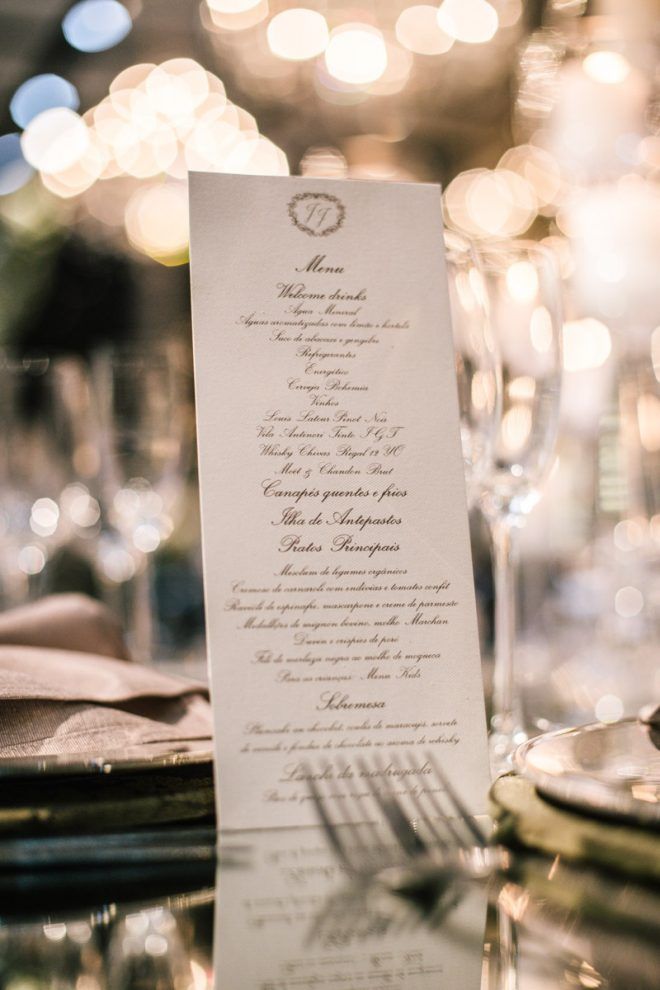 Menu
Welcome drinks
Água Mineral
Águas aromatizadas com limão e hortelã
Suco de abacaxi e gengibre
Refrigerantes
Energético
Cerveja Bohemia
Vinhos
Louis Latour Pinot Noir
Vila Antinori Tinto I.G.T
Whisky Chivas Regal 12 YO
Moët & Chandon Brut
Canapés quentes e frios
Ilha de Antepastos
Pratos Principais
de legumes orgânicos
Cremoso de carnaroli com endívias e tomates confit
Ravioli de espinafre, mascarpone e creme de parmesão
Medalhões de mignon bovino, molho Marchan
e crispies de
negra ao molho de moqueca
Para as crianças: Menu Kids
Sobremesa
chocolate, de maracujá, sorvete
de e de chocolate ao aroma de whisky
da madrugada